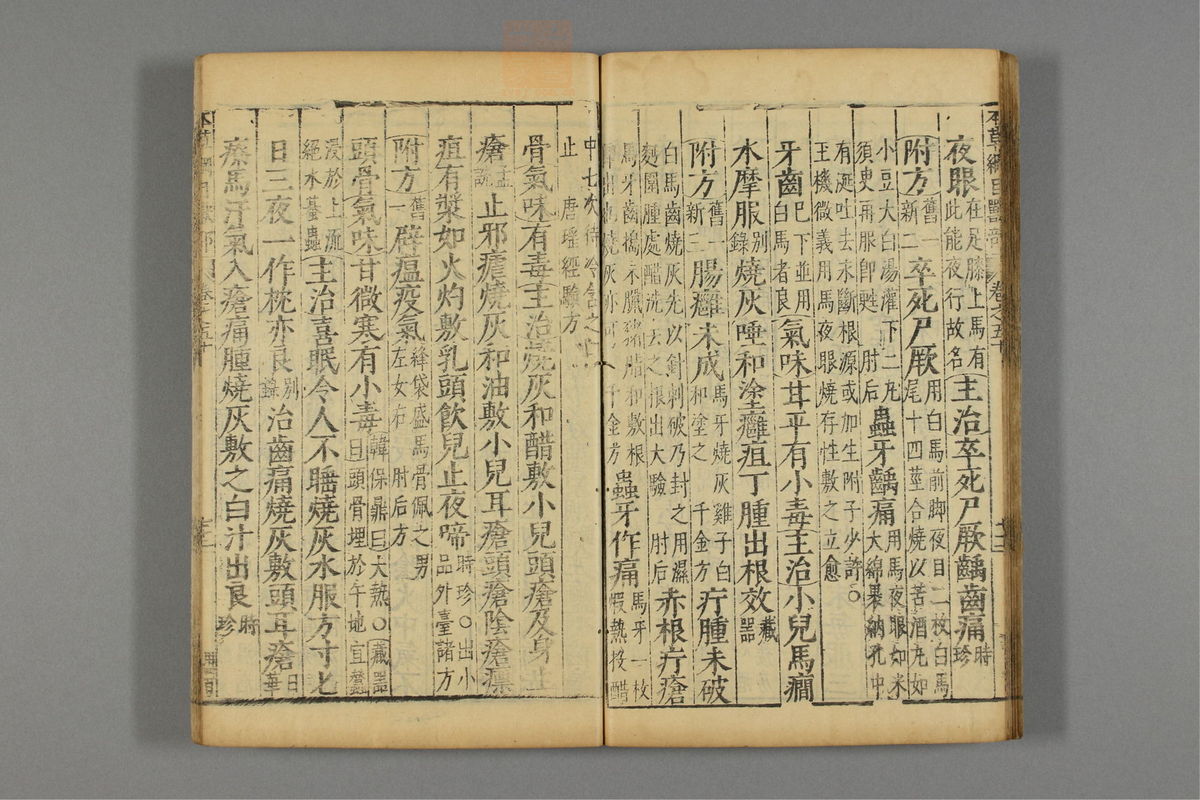 夜眼在足膝上馬有此能夜行故名主治卒死尸厥齲齒痛時珍
附方舊一新二卒死尸厥用白馬前脚夜目二枚白馬尾十四莖合燒以苦酒丸如
小豆大白湯灌下二丸須臾再服即甦肘后蟲牙齲痛用馬夜眼如米大綿裹納孔中
有涎吐去永斷根源或加生附子少許○王機微義用馬夜眼燒存性敷之立愈
牙齒已下並用白馬者良氣味甘平有小毒主治小兒馬癇
水摩服別錄燒灰唾和塗癰疽丁腫出根效藏器
附方舊一新三腸癰未成馬牙燒灰雞子白和塗之千金方疔腫未破
白馬齒燒灰先以針刺破乃封之用濕麪圍腫處醋洗去之根出大驗肘后赤根疔瘡
馬牙齒搗末臘豬脂和敷根即出也燒灰亦可千金方蟲牙作痛馬牙一枚煆熱投醋
中七次待冷含之即止唐瑤經驗方
骨氣味有毒主治燒灰和醋敷小兒頭瘡及身上
瘡孟詵止邪瘧燒灰和油敷小兒耳瘡頭瘡陰瘡瘭
疽有漿如火灼敷乳頭飲兒止夜啼時珍○出小品外臺諸方
附方舊一辟瘟疫氣絳袋盛馬骨佩之男左女右肘后方
頭骨氣味甘微寒有小毒韓保昇曰大熱○藏器曰頭骨埋於午地宜蠶
浸於上流絕水蜞蟲主治喜眠令人不睡燒灰水服方寸匕
日三夜一作枕亦良別錄治齒痛燒灰敷頭耳瘡日華
療馬汗氣入瘡痛腫燒灰敷之白汁出良時珍